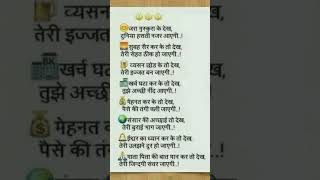 😊जरा मुस्कुरा के देख,
दुनिया हसती नजर आएगी..!
🌅सुबह सैर कर के तो देख,
तेरी सेहत ठीक हो जाएगी..!
व्यसन छोड के तो देख,
तेरी इज्जत बन जाएगी..!
खर्च घटा कर के तो देख,
तुझे अच्छी नींद आएगी..!
💰मेहनत कर के तो देख,
पैसे की तंगी चली जाएगी..!
संसार की अच्छाई तो देख,
तेरी बुराई भाग जाएगी..!
ईश्वर का ध्यान कर के तो देख,
तेरी उलझने दुर हो जाएगी..!
माता पिता की बात मान कर तो देख,
तेरी जिन्दगी संवर जाएगी..!